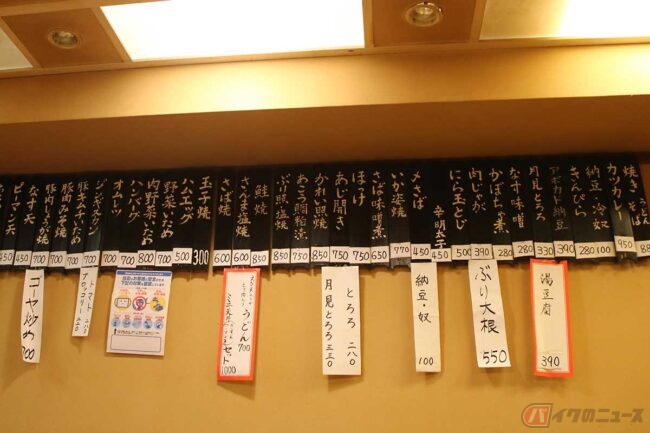 焼きそば
950
カツカレー
880
納豆・奴
100
きんぴら
280
アボカド納豆
390
月見とろろ
330
なす味噌
280
かぼちゃ煮
280
肉じゃが
390
にら玉とじ
500
辛明太子
450
〆さば
450
いか姿焼
770
さば味噌煮
650
ほっけ
750
あじ開き
750
かれい照焼
850
ぶり照塩焼
850
鮭焼
850
さんま塩焼
600
さば焼
600
玉子焼
300
ハムエッグ
500
野菜いため
700
肉野菜いため
800
ハンバーグ
700
オムレツ
700
ジンギスカン
700
豚キムチいため
豚肉みそ焼
700
豚肉しょうが焼
700
なす天
450
ピーマン天
450
湯豆腐
390
ぶり大根
550
納豆・奴
100
とろろ 二八〇
月見とろろ 三三〇
うどん 700
セット
1000
トマト
ブロッコリー
ゴーヤ炒め
700
バイクのニュース